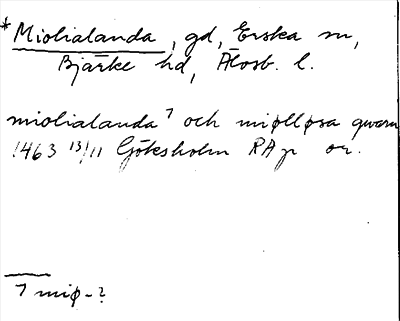 *Miolialanda, gd, Erska sn,
Bjärke hd, Älvsb. l.
miolialanda⁷ och miølløsa qwarn
1463 13/11 Göksholm RAp or.
7 miø-?